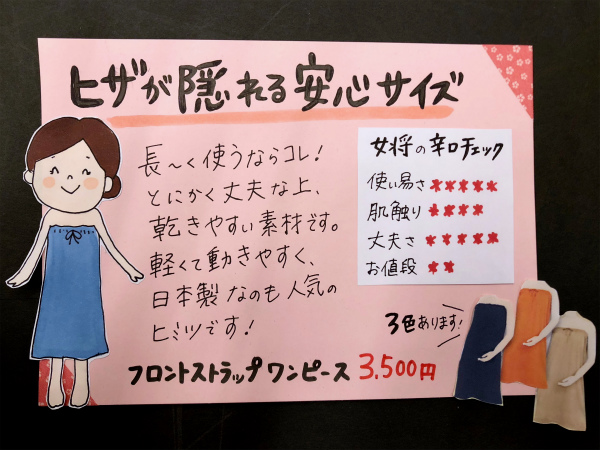 ヒザが隠れる安心サイズ
長〜く使うならコレ!
とにかく丈夫な上、
乾きやすい素材です。
軽くて動きやすく、
日本製なのも人気の
ヒミツです!
女将の辛口チェック
使い易さ *****
肌触り ****
丈夫さ *****
お値段 **
3色あります!
フロントストラップワンピース 3.500円